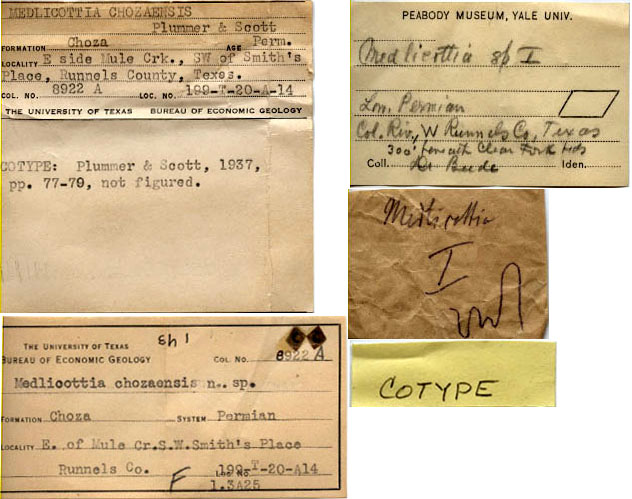 MEDLICOTTIA CHOZAENSIS
Plummer & Scott
FORMATION Choza AGE Perm.
LOCALITY E side Mule Crk., SW of Smith's
Place, Runnels County, Texas.
COL. NO. 8922 A LOC. NO. 199-T-20-A-14
THE UNIVERSITY OF TEXAS BUREAU OF ECONOMIC GEOLOGY
COTYPE: Plummer & Scott, 1937,
pp. 77-79, not figured.
THE UNIVERSITY OF TEXAS
BUREAU OF ECONOMIC GEOLOGY COL. NO. 8922 A
Medlicottia chozaensis n. sp.
FORMATION Choza SYSTEM Permian
LOCALITY E. of Mule Cr.S.W.Smith's Place
Runnels Co. LOC. NO. 199-T-20-A14
F 1.3A25
PEABODY MUSEUM, YALE UNIV.
Medlicottia sp I
Low. Permian
Col. Riv, W Runnels Co, Texas
300' beneath Clear Fork beds
Coll. Dr Beede Iden.
Medlicottia
I
COTYPE